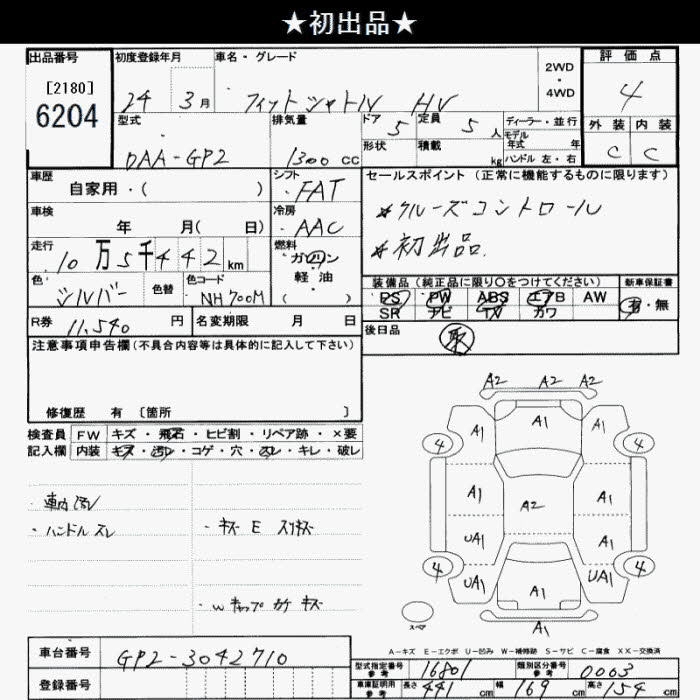 ★初出品★
出品番号 初度登録年月 車名・グレード 2WD・4WD 評価点
[2180]
6204
24 3月 フィットシャトル HV 4
型式 排気量 ドア 5 定員 5人 ディーラー・並行 外装 内装
DAA-GP2 1300cc 形状 積載 kg モデル年式 年 ハンドル 左・右 C C
車歴 シフト セールスポイント(正常に機能するものに限ります)
自家用・( ) FAT
車検 冷房 *クルーズコントロール
年 月( 日) AAC *初出品
走行 燃料
10万5千442km ガソリン
色 色替 色コード 軽・油 装備品(純正品に限り○をつけてください) 新車保証書
シルバー NH700M ( ) PS PW ABS エアB AW 有・無
SR ナビ TV カワ
R券 11,540円 名変期限 月 日 後日品 取
注意事項申告欄(不具合内容等は具体的に記入して下さい)
修復歴 有[箇所 ]
検査員 FW キズ・飛石・ヒビ割・リペア跡・×要
記入欄 内装 キズ・汚れ・コゲ・穴・スレ・キレ・破レ
・ハンドルスレ ・キズ E スリキズ
・Wキャップ ガケ キズ
A2 A2 A2
A1 A1 A1
4 4
A1 A2 A1
UA1 A1
4 4
UA1 A1 UA1
スペア
A1
A-キズ E-エクボ U-凹み W-補修跡 S-サビ C-腐食 XX-交換済
車台番号 GP2-3042710
登録番号
型式指定番号 参考 16801 類別区分番号 参考 0063
車庫証明用 参考 長さ 441cm 幅 169cm 高さ 154cm